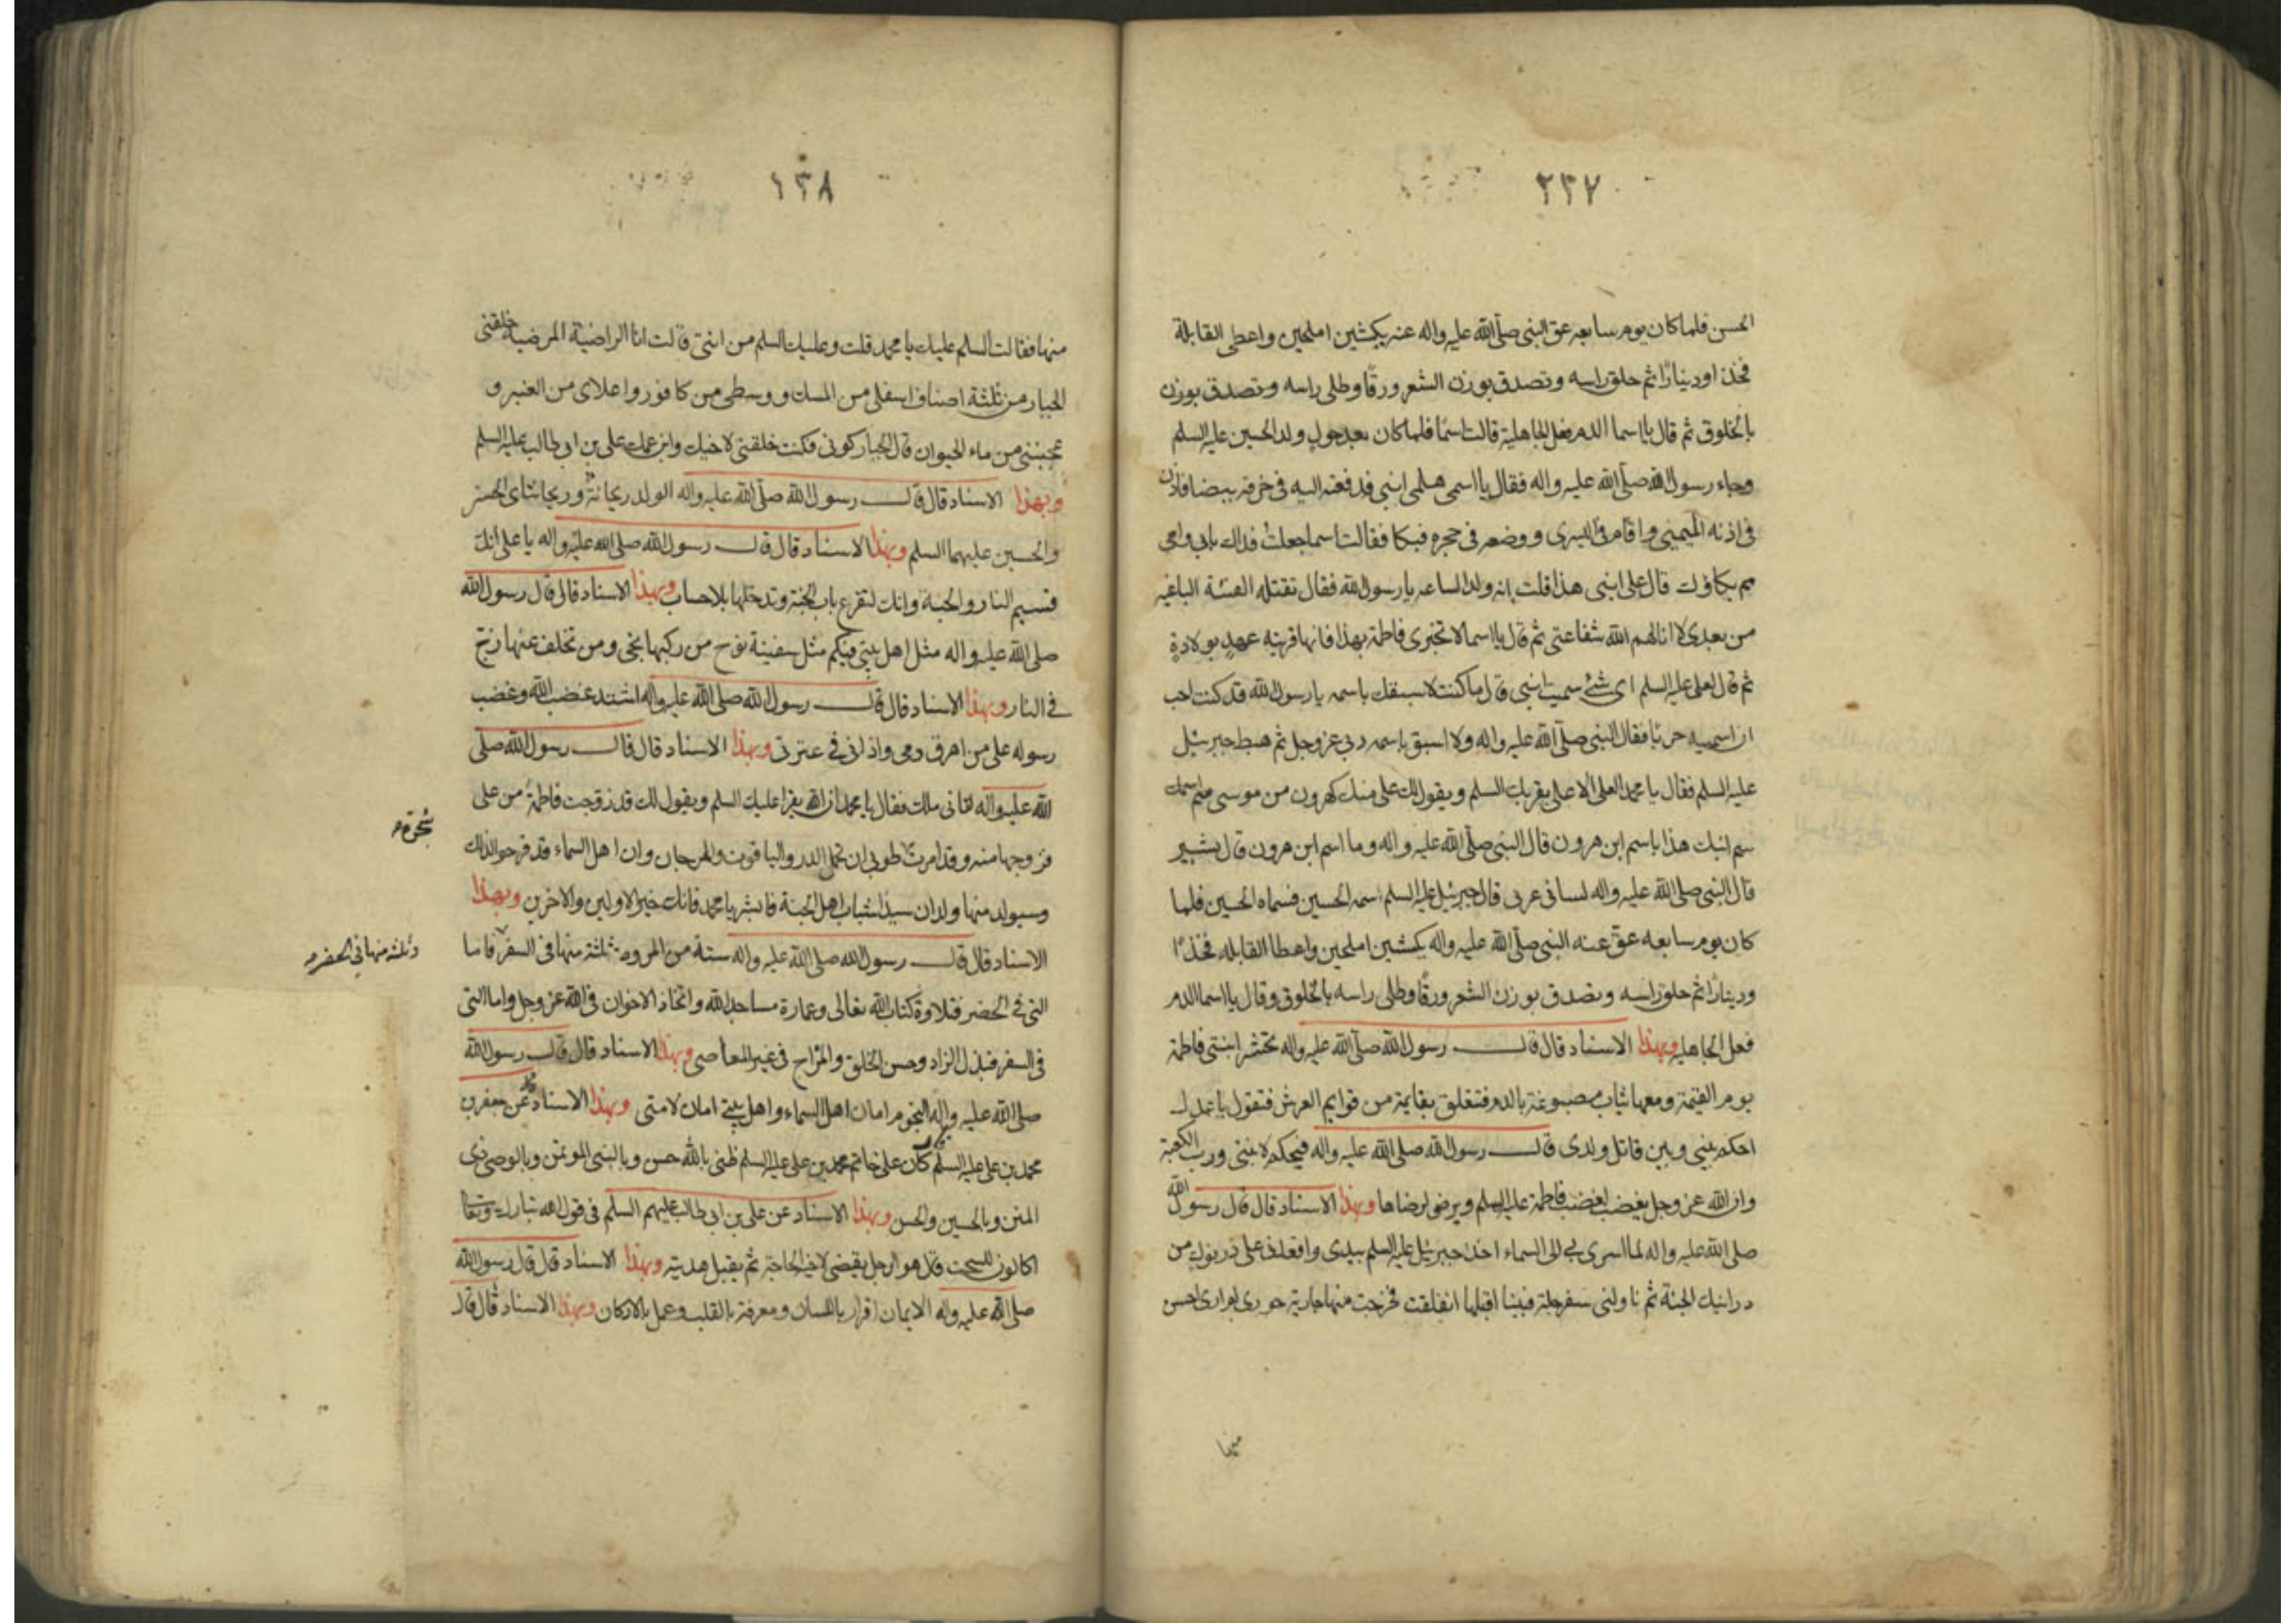 ٢٣٧
الحسن فلما كان يوم سابعه عق النبى صلى الله عليه واله عنه بكبشين املحين واعطى القابلة
فخذا ودينارًا ثم حلق راسه وتصدق بوزن الشعر ورقًا وطلى راسه وتصدق بوزن
بالخلوق ثم قال يا اسما الدم فعل الجاهلية قالت اسما فلما كان بعد حول ولد الحسين عليه السلم
وجاء رسول الله صلى الله عليه واله فقال يا اسمى هلمى ابنى فدفعته اليه فى خرقه بيضا فاذن
فى اذنه اليمينى واقام فى اليسرى ووضعه فى حجره فبكا فقالت اسما جعلت فداك بابى وامى
مم بكاؤك قال على ابنى هذا قلت انه ولد الساعه يا رسول الله فقال تقتله الفئة الباغيه
من بعدى لا انالهم الله شفاعتى ثم قال يا اسما لا تخبرى فاطمة بهذا فانها قريبه عهد بولادة
ثم قال لعلى عليه السلم اى شئ سميت ابنى قال ما كنت لاسبقك باسمه يا رسول الله قد كنت احب
ان اسميه حربًا فقال النبى صلى الله عليه واله ولا اسبق باسمه ربى عز وجل ثم هبط جبرئيل
عليه السلم فقال يا محمد العلى الاعلى يقريك السلم ويقول لك على منك كهرون من موسى
سم ابنك هذا باسم ابن هرون قال النبى صلى الله عليه واله وما اسم ابن هرون قال شبير
قال النبى صلى الله عليه واله لسانى عربى قال جبرئيل عليه السلم اسمه الحسين فسماه الحسين فلما
كان يوم سابعه عق عنه النبى صلى الله عليه واله بكبشين املحين واعطا القابله فخذًا
ودينارًا ثم حلق راسه وتصدق بوزن الشعر ورقًا وطلى راسه بالخلوق وقال يا اسما الدم
فعل الجاهليه وبهذا الاسناد قال قال رسول الله صلى الله عليه واله تحشر ابنتى فاطمة
يوم القيمة ومعها ثياب مصبوغة بالدم فتتعلق بقايمة من قوايم العرش فتقول يا عدل
احكم بينى وبين قاتل ولدى قال رسول الله صلى الله عليه واله فيحكم لابنتى ورب الكعبة
وان الله عز وجل يغضب لغضب فاطمة عليها السلم ويرضى لرضاها وبهذا الاسناد قال قال رسول الله
صلى الله عليه واله لما اسرى بى الى السماء اخذ جبرئيل عليه السلم بيدى واقعدنى على درنوك من
درانيك الجنة ثم ناولنى سفرجلة فبينا اقبلها انفلقت فخرجت منها جارية حورى لم ارى احسن
منها
١٣٨
منها فقالت السلم عليك يا محمد قلت وعليك السلم من انتى قالت انا الراضية المرضية خلقنى
الجبار من ثلثة اصناف اسفلى من المسك ووسطى من كافور واعلاى من العنبر و
عجبنى من ماء الحيوان قال الجبار كونى فكنت خلقنى لاخيك وابن عمك على بن ابى طالب عليه السلم
وبهذا الاسناد قال قال رسول الله صلى الله عليه واله الولد ريحانة وريحانتاى الحسن
والحسين عليهما السلم وبهذا الاسناد قال قال رسول الله صلى الله عليه واله يا على انك
قسيم النار والجنة وانك لتقرع باب الجنة وتدخلها بلا حساب وبهذا الاسناد قال قال رسول الله
صلى الله عليه واله مثل اهل بيتى فيكم مثل سفينة نوح من ركبها نجى ومن تخلف عنها زخ
فى النار وبهذا الاسناد قال قال رسول الله صلى الله عليه واله اشتد غضب الله وغضب
رسوله على من اهرق دمى واذانى فى عترتى وبهذا الاسناد قال قال رسول الله صلى
الله عليه واله اتانى ملك فقال يا محمد ان الله يقرا عليك السلم ويقول لك قد زوجت فاطمة من على
فزوجها منه وقد امرت طوبى ان تحمل الدر والياقوت والمرجان وان اهل السماء قد فرحوا لذلك
شجرة
وسيولد منها ولدان سيدا شباب اهل الجنة فابشر يا محمد فانك خير الاولين والاخرين وبهذا
الاسناد قال قال رسول الله صلى الله عليه واله ستة من المروه ثلثة منها فى السفر فاما
وثلثه منها فى الحضر
التى فى الحضر فتلاوة كتاب الله تعالى وعمارة مساجد الله واتخاذ الاخوان فى الله عز وجل واما التى
فى السفر فبذل الزاد وحسن الخلق والمزاح فى غير المعاصى وبهذا الاسناد قال قال رسول الله
صلى الله عليه واله النجوم امان اهل السماء واهل بيتى امان لامتى وبهذا الاسناد عن جعفر بن
محمد بن على عليه السلم كان على خاتم محمد بن على عليه السلم ظنى بالله حسن وبالنبى الموتمن وبالوصى ذى
المنن وبالحسين والحسن وبهذا الاسناد عن على بن ابى طالب عليهم السلم فى قول الله تبارك وتعا
اكالون للسحت قال هو الرجل يقضى لاخيه الحاجة ثم يقبل هديته وبهذا الاسناد قال قال رسول الله
صلى الله عليه واله الايمان اقرار باللسان ومعرفة بالقلب وعمل بالاركان وبهذا الاسناد قال قال